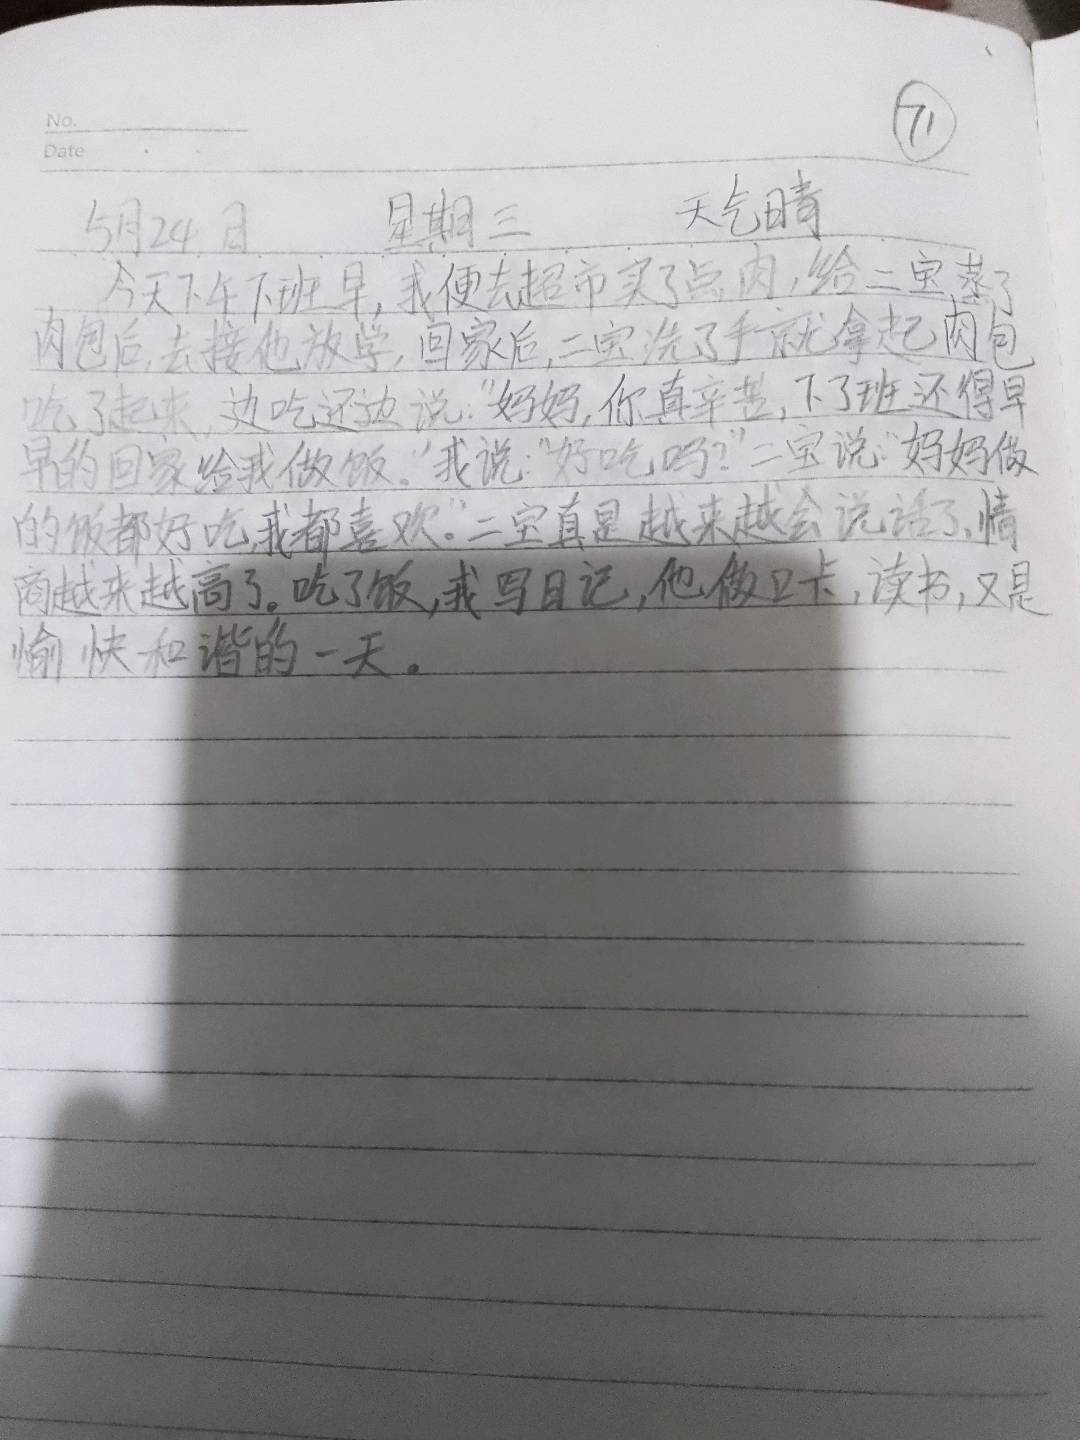 No.
71
Date
5月24日 星期三 天气晴
今天下午下班早,我便去超市买了点肉,给二宝蒸了
肉包后,去接他放学,回家后,二宝洗了手就拿起肉包
吃了起来,边吃还边说:"妈妈,你真辛苦,下了班还得早
早的回家给我做饭。"我说:"好吃吗?"二宝说:"妈妈做
的饭都好吃,我都喜欢。"二宝真是越来越会说话了,情
商越来越高了。吃了饭,我写日记,他做口卡,读书,又是
愉快和谐的一天。